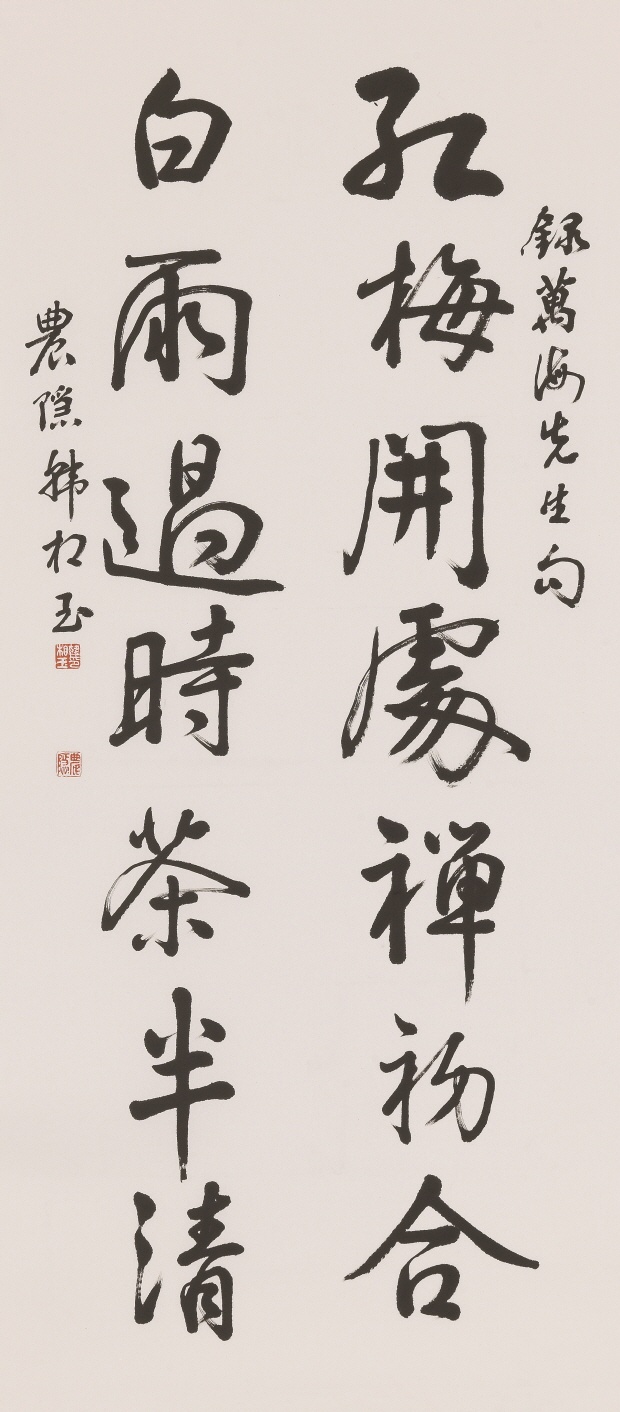 錄萬海先生句
紅梅開處禪初合
白雨過時茶半清
農隱韓相玉
農隱